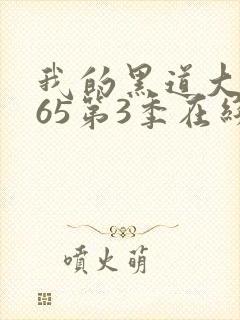 我的黑道大
65第3季在
噴火萌